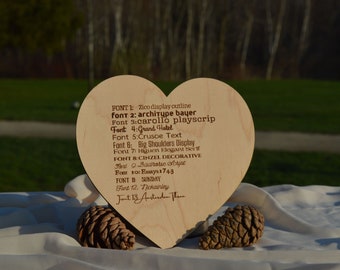 FONT 1: Zico display outline
font 2: architype bayer
Font 3: carollo playscrip
Font 4: Grand Hotel
Font 5: Crusoe Text
Font 6: Big Shoulders Display
Font 7: Elegant Serif
FONT 8: CINZEL DECORATIVE
Font 9:
Font 10: Essays1743
FONT 11: SUNDAY
Font 12:
Font 13: Amsterdam